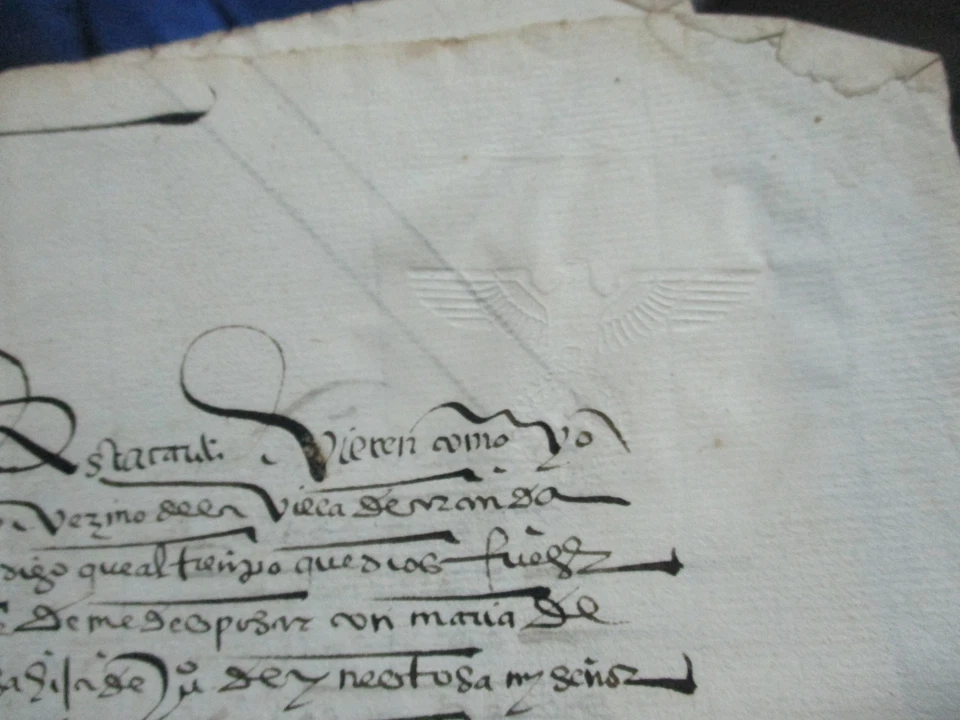 esta carta vieren como yo
vezino dela villa de aranda
digo que al tienpo que dios fue
de me desposar con maria de
hija de ju° de ynestrosa my señor